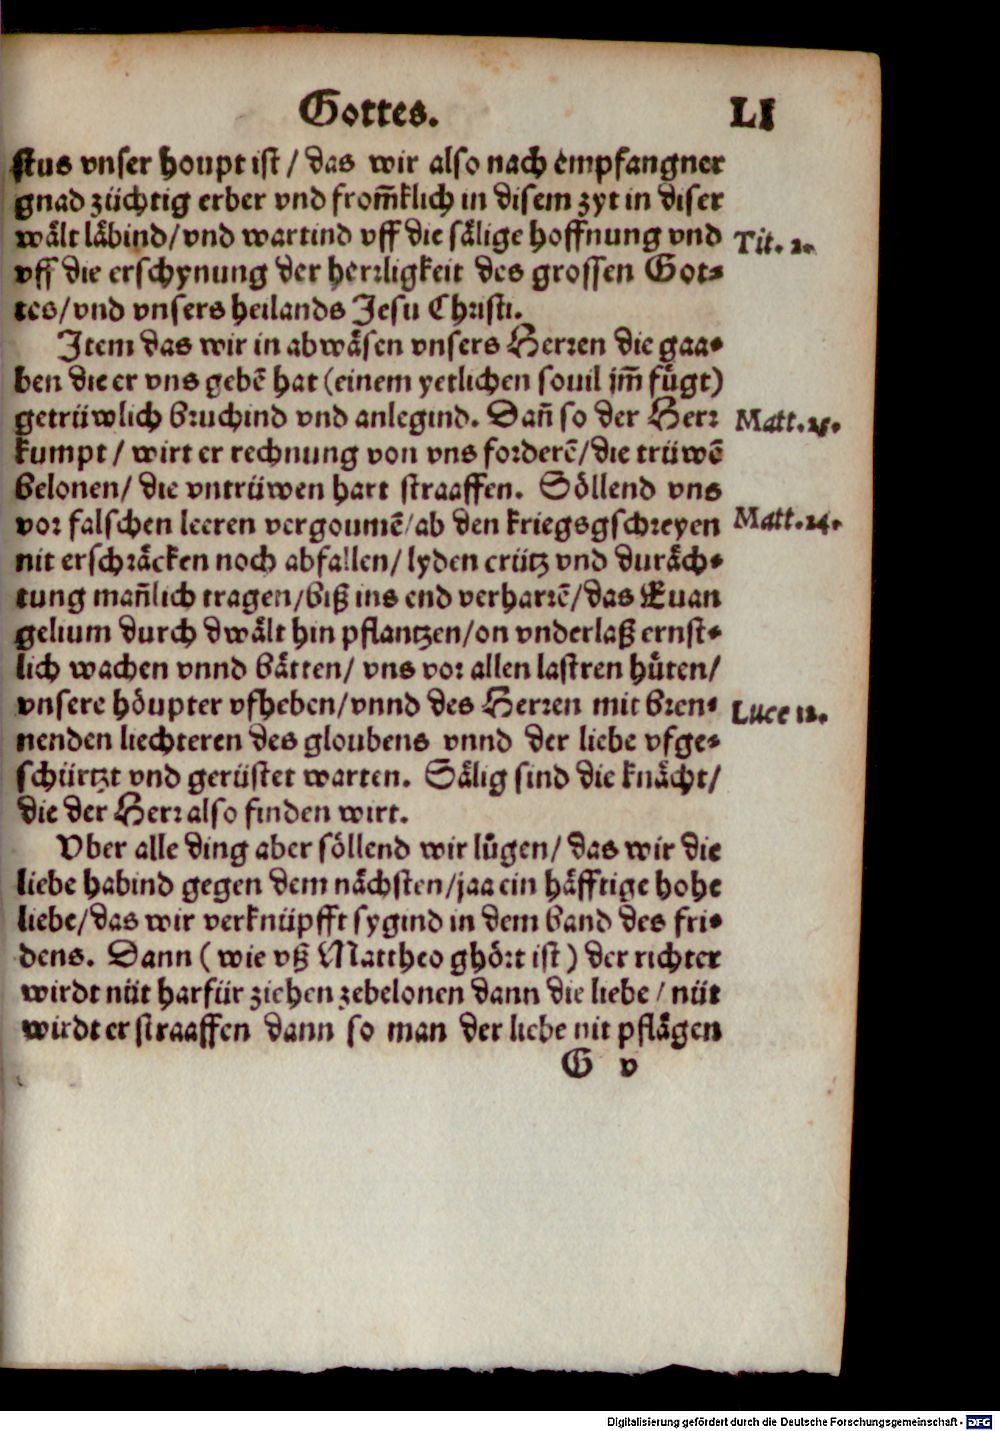 Gottes. LI
stus vnser houpt ist / das wir also nach empfangner
gnad züchtig erber vnd from̄klich in disem zyt in diser
wält läbind/vnd wartind vff die sälige hoffnung vnd
Tit. 2.
vff die erschynung der herrligkeit des grossen Got⸗
tes/vnd vnsers heilands Jesu Christi.
Item das wir in abwäsen vnsers Herren die gaa⸗
ben die er vns gebē hat (einem yetlichen souil jm̄ fuͤgt)
getrüwlich bruchind vnd anlegind. Dañ so der Herr
Matt.25.
kumpt / wirt er rechnung von vns forderē/die trüwē
belonen/ die vntrüwen hart straaffen. Söllend vns
vor falschen leeren vergoumē/ab den kriegsgschreyen
Matt.24.
nit erschräcken noch abfallen/ lyden crütz vnd duräch⸗
tung mañlich tragen/biß ins end verharrē/das Euan
gelium durch dwält hin pflantzen/on vnderlaß ernst⸗
lich wachen vnnd bätten/ vns vor allen lastren huͤten/
vnsere höupter vfheben/vnnd des Herren mit bren⸗
Luce 12.
nenden liechteren des gloubens vnnd der liebe vfge⸗
schürtzt vnd gerüstet warten. Sälig sind die knächt/
die der Herr also finden wirt.
Vber alle ding aber söllend wir luͤgen/ das wir die
liebe habind gegen dem nächsten/jaa ein häfftige hohe
liebe/das wir verknüpfft sygind in dem band des fri⸗
dens. Dann ( wie vß Mattheo ghört ist ) der richter
wirdt nüt harfür ziehen zebelonen dann die liebe / nüt
wirdt er straaffen dann so man der liebe nit pflägen
G v
Digitalisierung gefördert durch die Deutsche Forschungsgemeinschaft - DFG